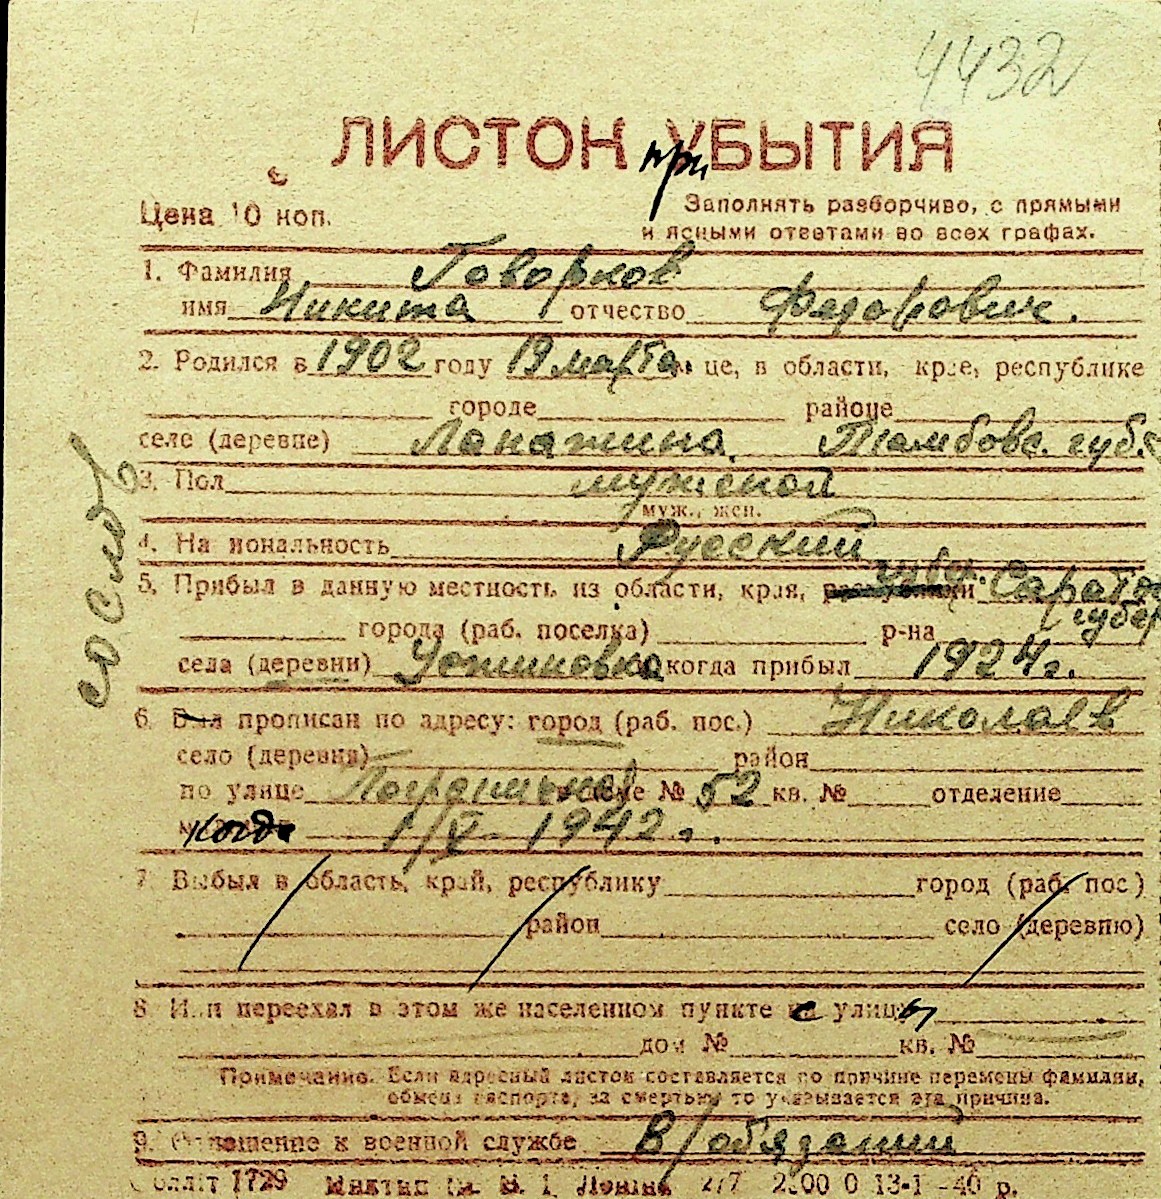 4432
ЛИСТОК при УБЫТИЯ
Цена 10 коп.
Заполнять разборчиво, с прямыми
и ясными ответами во всех графах.
1. Фамилия Говорков
имя Никита отчество Федорович.
2. Родился в 1902 году 19 марта це, в области, крае, республике
городе районе
селе (деревне) Тамбовс. губ.
3. Пол мужской
муж., жен.
4. На иональность Русский
5. Прибыл в данную местность из области, края, губер. Сарато
губер
города (раб. поселка) р-на
села (деревни) когда прибыл 1924 г.
6. Был прописан по адресу: город (раб. пос.) Николаев
село (деревня) район
по улице № 52 кв. № отделение
когда 1/V - 1942 г.
7. Выбыл в область, край, республику город (раб. пос.)
район село (деревню)
8. Или переехал в этом же населенном пункте с улицы
дом № кв. №
Примечание. Если адресный листок составляется по причине перемены фамилии,
обмена паспорта, за смертью то указывается эта причина.
9. Отношение к военной службе В/обязаний
1729 Ленина 277 2500 0 13-1 -40 р.